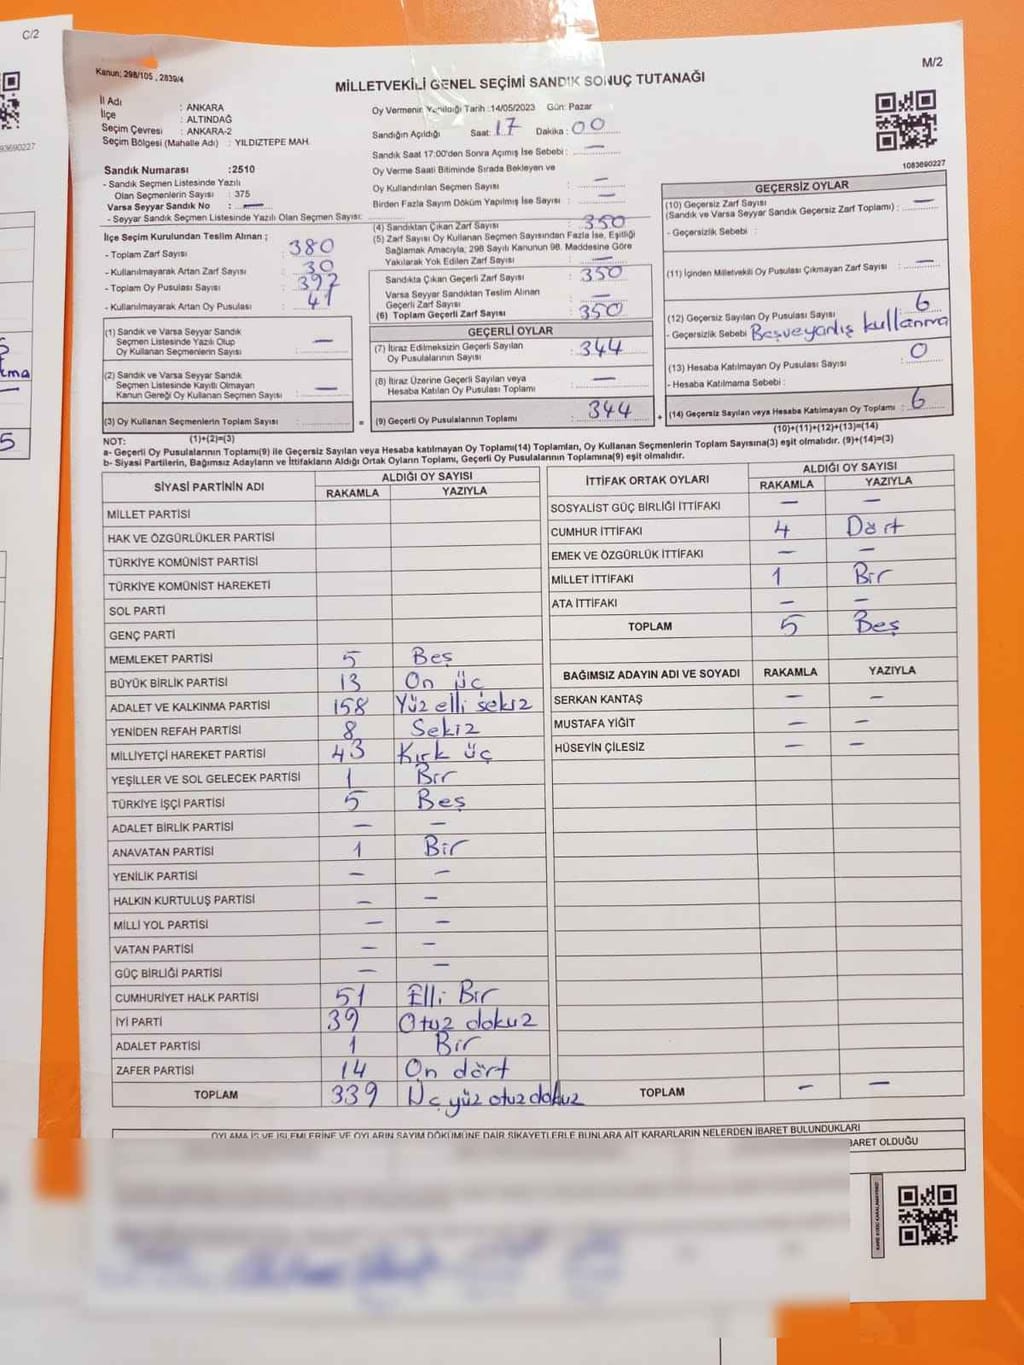 C/2
93690227
Kanun; 298/105 , 2839/4
MİLLETVEKİLİ GENEL SEÇİMİ SANDIK SONUÇ TUTANAĞI
M/2
İl Adı : ANKARA
İlçe : ALTINDAĞ
Seçim Çevresi : ANKARA-2
Seçim Bölgesi (Mahalle Adı) : YILDIZTEPE MAH.
Oy Vermenin Yapıldığı Tarih :14/05/2023 Gün: Pazar
Sandığın Açıldığı Saat: 17 Dakika : 00
Sandık Saat 17:00'den Sonra Açımış İse Sebebi : —
Oy Verme Saati Bitiminde Sırada Bekleyen ve
Oy Kullandırılan Seçmen Sayısı : —
Birden Fazla Sayım Döküm Yapılmış İse Sayısı : —
1083690227
Sandık Numarası :2510
- Sandık Seçmen Listesinde Yazılı
Olan Seçmenlerin Sayısı : 375
Varsa Seyyar Sandık No : —
- Seyyar Sandık Seçmen Listesinde Yazılı Olan Seçmen Sayısı:
İlçe Seçim Kurulundan Teslim Alınan ;
- Toplam Zarf Sayısı : 380
- Kullanılmayarak Artan Zarf Sayısı : 30
- Toplam Oy Pusulası Sayısı : 397
- Kullanılmayarak Artan Oy Pusulası : 47
(1) Sandık ve Varsa Seyyar Sandık
Seçmen Listesinde Yazılı Olup
Oy Kullanan Seçmenlerin Sayısı : —
(2) Sandık ve Varsa Seyyar Sandık
Seçmen Listesinde Kayıtlı Olmayan
Kanun Gereği Oy Kullanan Seçmen Sayısı : —
(3) Oy Kullanan Seçmenlerin Toplam Sayısı :
(1)+(2)=(3)
(4) Sandıktan Çıkan Zarf Sayısı : 350
(5) Zarf Sayısı Oy Kullanan Seçmen Sayısından Fazla İse, Eşitliği
Sağlamak Amacıyla, 298 Sayılı Kanunun 98. Maddesine Göre
Yakılarak Yok Edilen Zarf Sayısı : —
Sandıkta Çıkan Geçerli Zarf Sayısı : 350
Varsa Seyyar Sandıktan Teslim Alınan
Geçerli Zarf Sayısı : —
(6) Toplam Geçerli Zarf Sayısı : 350
GEÇERLİ OYLAR
(7) İtiraz Edilmeksizin Geçerli Sayılan
Oy Pusulalarının Sayısı : 344
(8) İtiraz Üzerine Geçerli Sayılan veya
Hesaba Katılan Oy Pusulası Toplamı : —
= (9) Geçerli Oy Pusulalarının Toplamı : 344
GEÇERSİZ OYLAR
(10) Geçersiz Zarf Sayısı
(Sandık ve Varsa Seyyar Sandık Geçersiz Zarf Toplamı) : —
- Geçersizlik Sebebi :
(11) İçinden Milletvekili Oy Pusulası Çıkmayan Zarf Sayısı : —
(12) Geçersiz Sayılan Oy Pusulası Sayısı : 6
- Geçersizlik Sebebi Beşveyanlış kullanma
(13) Hesaba Katılmayan Oy Pusulası Sayısı : 0
- Hesaba Katılmama Sebebi :
+ (14) Geçersiz Sayılan veya Hesaba Katılmayan Oy Toplamı : 6
(10)+(11)+(12)+(13)=(14)
NOT:
a- Geçerli Oy Pusulalarının Toplamı(9) ile Geçersiz Sayılan veya Hesaba katılmayan Oy Toplamı(14) Toplamları, Oy Kullanan Seçmenlerin Toplam Sayısına(3) eşit olmalıdır. (9)+(14)=(3)
b- Siyasi Partilerin, Bağımsız Adayların ve İttifakların Aldığı Ortak Oyların Toplamı, Geçerli Oy Pusulalarının Toplamına(9) eşit olmalıdır.
SİYASİ PARTİNİN ADI ALDIĞI OY SAYISI
RAKAMLA YAZIYLA
MİLLET PARTİSİ
HAK VE ÖZGÜRLÜKLER PARTİSİ
TÜRKİYE KOMÜNİST PARTİSİ
TÜRKİYE KOMÜNİST HAREKETİ
SOL PARTİ
GENÇ PARTİ
MEMLEKET PARTİSİ 5 Beş
BÜYÜK BİRLİK PARTİSİ 13 On üç
ADALET VE KALKINMA PARTİSİ 158 Yüz elli sekiz
YENİDEN REFAH PARTİSİ 8 Sekiz
MİLLİYETÇİ HAREKET PARTİSİ 43 Kırk üç
YEŞİLLER VE SOL GELECEK PARTİSİ 1 Bir
TÜRKİYE İŞÇİ PARTİSİ 5 Beş
ADALET BİRLİK PARTİSİ — —
ANAVATAN PARTİSİ 1 Bir
YENİLİK PARTİSİ — —
HALKIN KURTULUŞ PARTİSİ — —
MİLLİ YOL PARTİSİ — —
VATAN PARTİSİ — —
GÜÇ BİRLİĞİ PARTİSİ — —
CUMHURİYET HALK PARTİSİ 51 Elli Bir
İYİ PARTİ 39 Otuz dokuz
ADALET PARTİSİ 1 Bir
ZAFER PARTİSİ 14 On dört
TOPLAM 339 Üç yüz otuz dokuz
İTTİFAK ORTAK OYLARI ALDIĞI OY SAYISI
RAKAMLA YAZIYLA
SOSYALİST GÜÇ BİRLİĞİ İTTİFAKI — —
CUMHUR İTTİFAKI 4 Dört
EMEK VE ÖZGÜRLÜK İTTİFAKI — —
MİLLET İTTİFAKI 1 Bir
ATA İTTİFAKI — —
TOPLAM 5 Beş
BAĞIMSIZ ADAYIN ADI VE SOYADI RAKAMLA YAZIYLA
SERKAN KANTAŞ — —
MUSTAFA YİĞİT — —
HÜSEYİN ÇİLESİZ — —
TOPLAM — —
OYLAMA İŞ VE İŞLEMLERİNE VE OYLARIN SAYIM DÖKÜMÜNE DAİR ŞİKAYETLERLE BUNLARA AİT KARARLARIN NELERDEN İBARET BULUNDUKLARI
BARET OLDUĞU